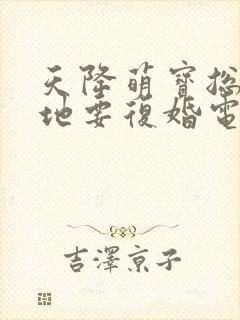 天降萌寶総
地要復婚電
吉澤京子